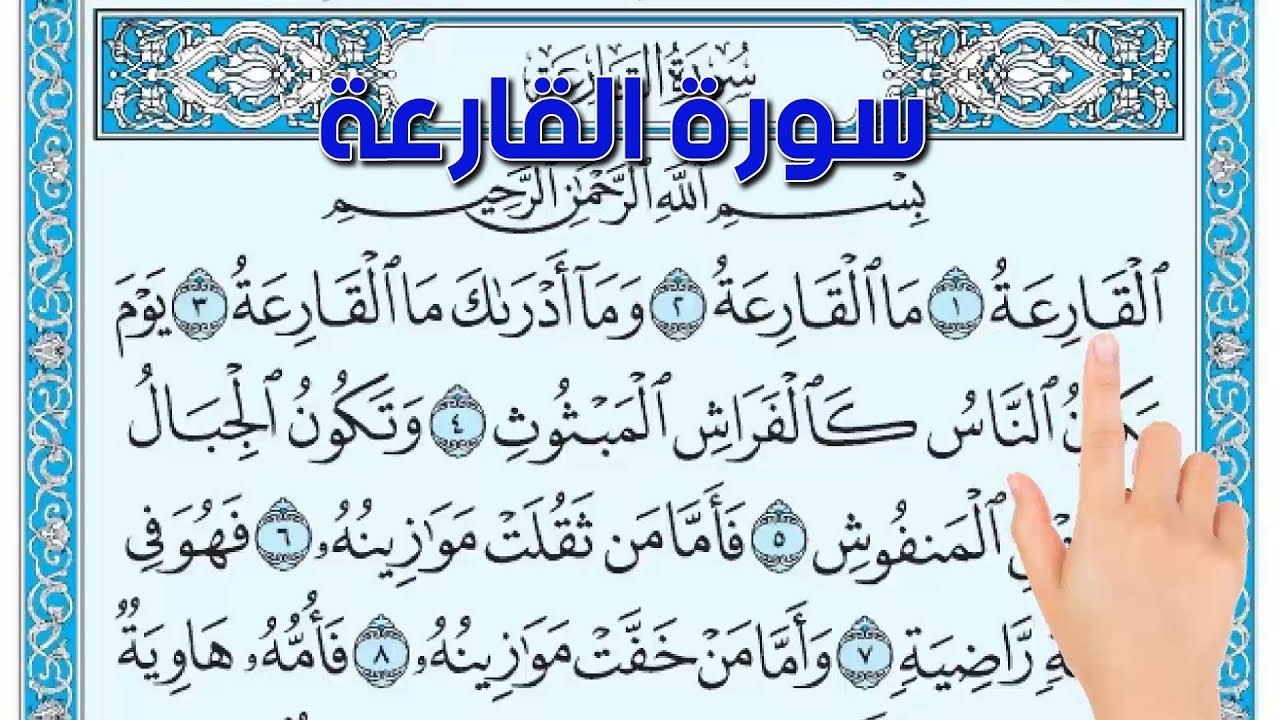 سُورَةُ القَارِعَةِ
سورة القارعة
بِسْمِ ٱللَّهِ ٱلرَّحْمَٰنِ ٱلرَّحِيمِ
ٱلْقَارِعَةُ ١ مَا ٱلْقَارِعَةُ ٢ وَمَآ أَدْرَىٰكَ مَا ٱلْقَارِعَةُ ٣ يَوْمَ
ٱلنَّاسُ كَٱلْفَرَاشِ ٱلْمَبْثُوثِ ٤ وَتَكُونُ ٱلْجِبَالُ
ٱلْمَنفُوشِ ٥ فَأَمَّا مَن ثَقُلَتْ مَوَٰزِينُهُۥ ٦ فَهُوَ فِى
رَّاضِيَةٍ ٧ وَأَمَّا مَنْ خَفَّتْ مَوَٰزِينُهُۥ ٨ فَأُمُّهُۥ هَاوِيَةٌ